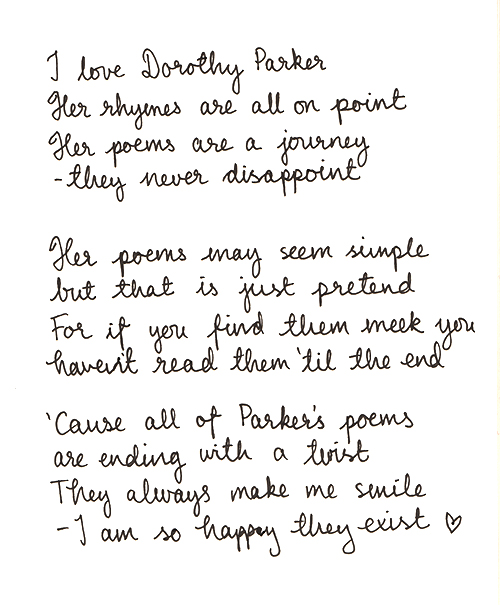 I love Dorothy Parker
Her rhymes are all on point
Her poems are a journey
-they never disappoint
Her poems may seem simple
but that is just pretend
For if you find them meek you
haven't read them 'til the end
'Cause all of Parker's poems
are ending with a twist
They always make me smile
-I am so happy they exist ♡